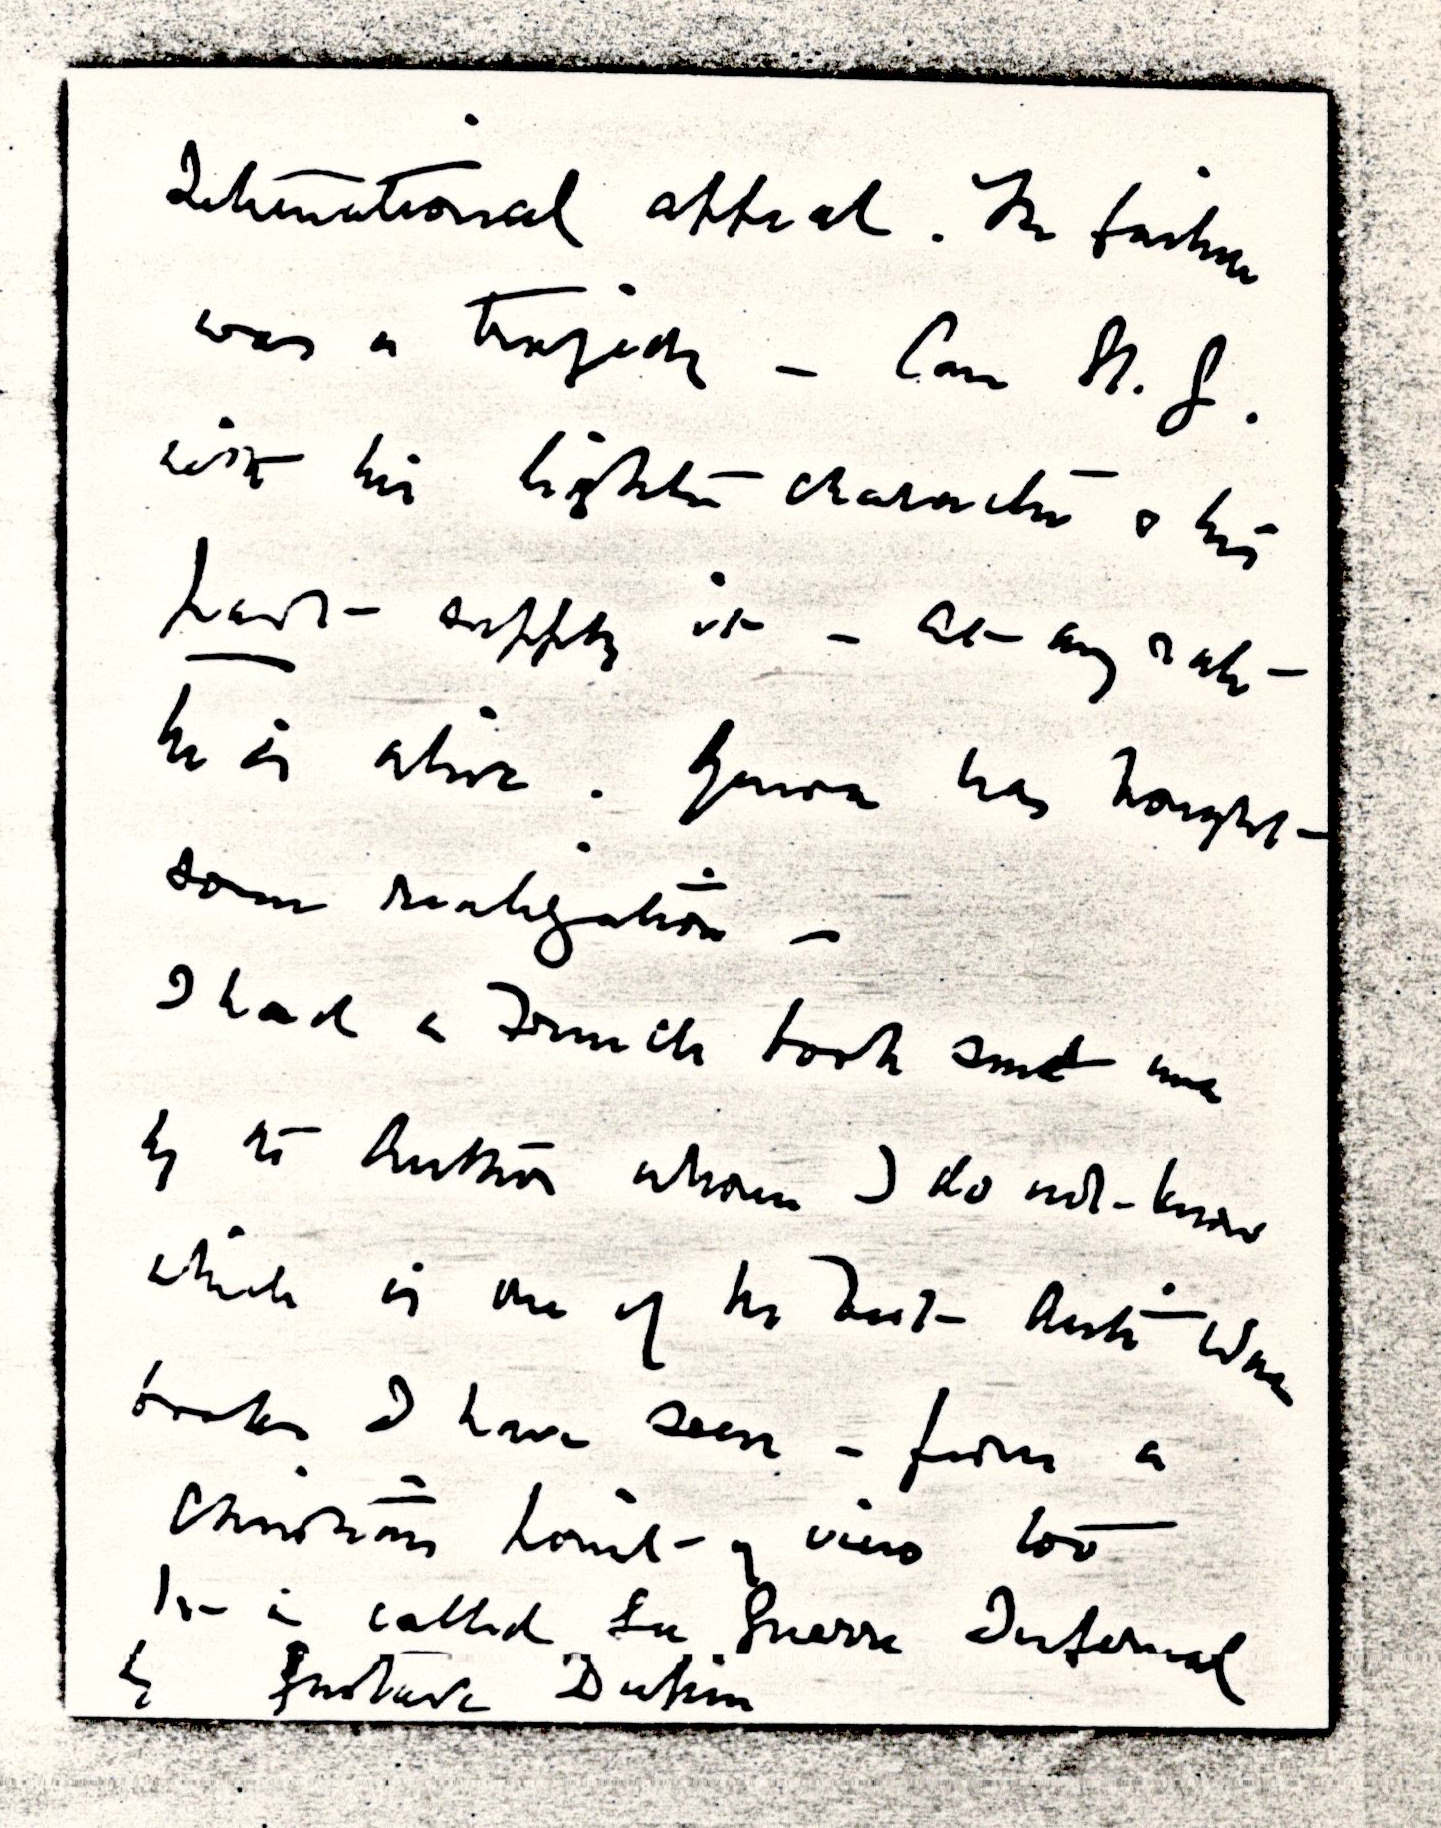 International appeal. The failure
was a tragedy – Can N. G.
with his lighter character & his
heart supply it – at any rate
he is alive. Geneva has brought
some realization –
I had a French book sent me
by its Author whom I do not know
which is one of the best Anti War
books I have seen – from a
Christian point of view too
It is called La Guerre Infernal
by Gustave Dupin